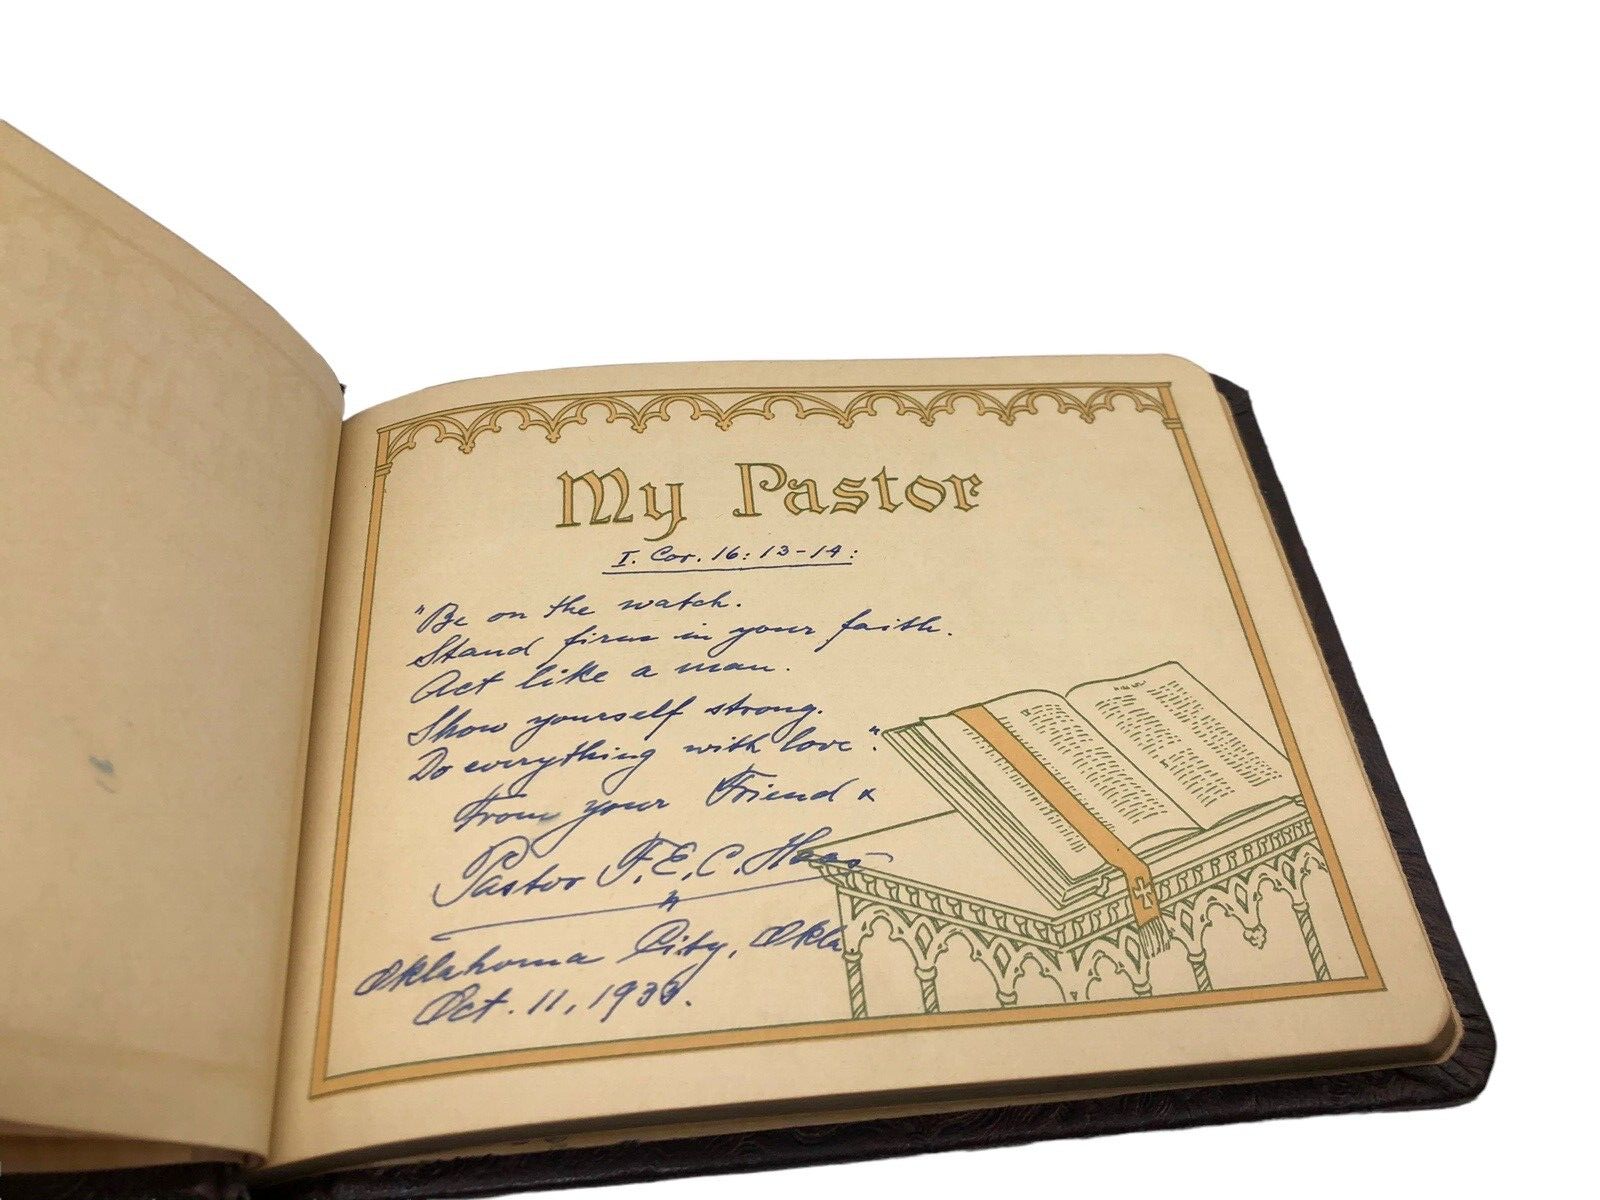 My Pastor
I. Cor. 16: 13-14:
"Be on the watch.
Stand firm in your faith.
Act like a man.
Show yourself strong.
Do everything with love".
From your Friend &
Pastor F. E. C. Haas
Oklahoma City, Okla.
Oct. 11, 1938.